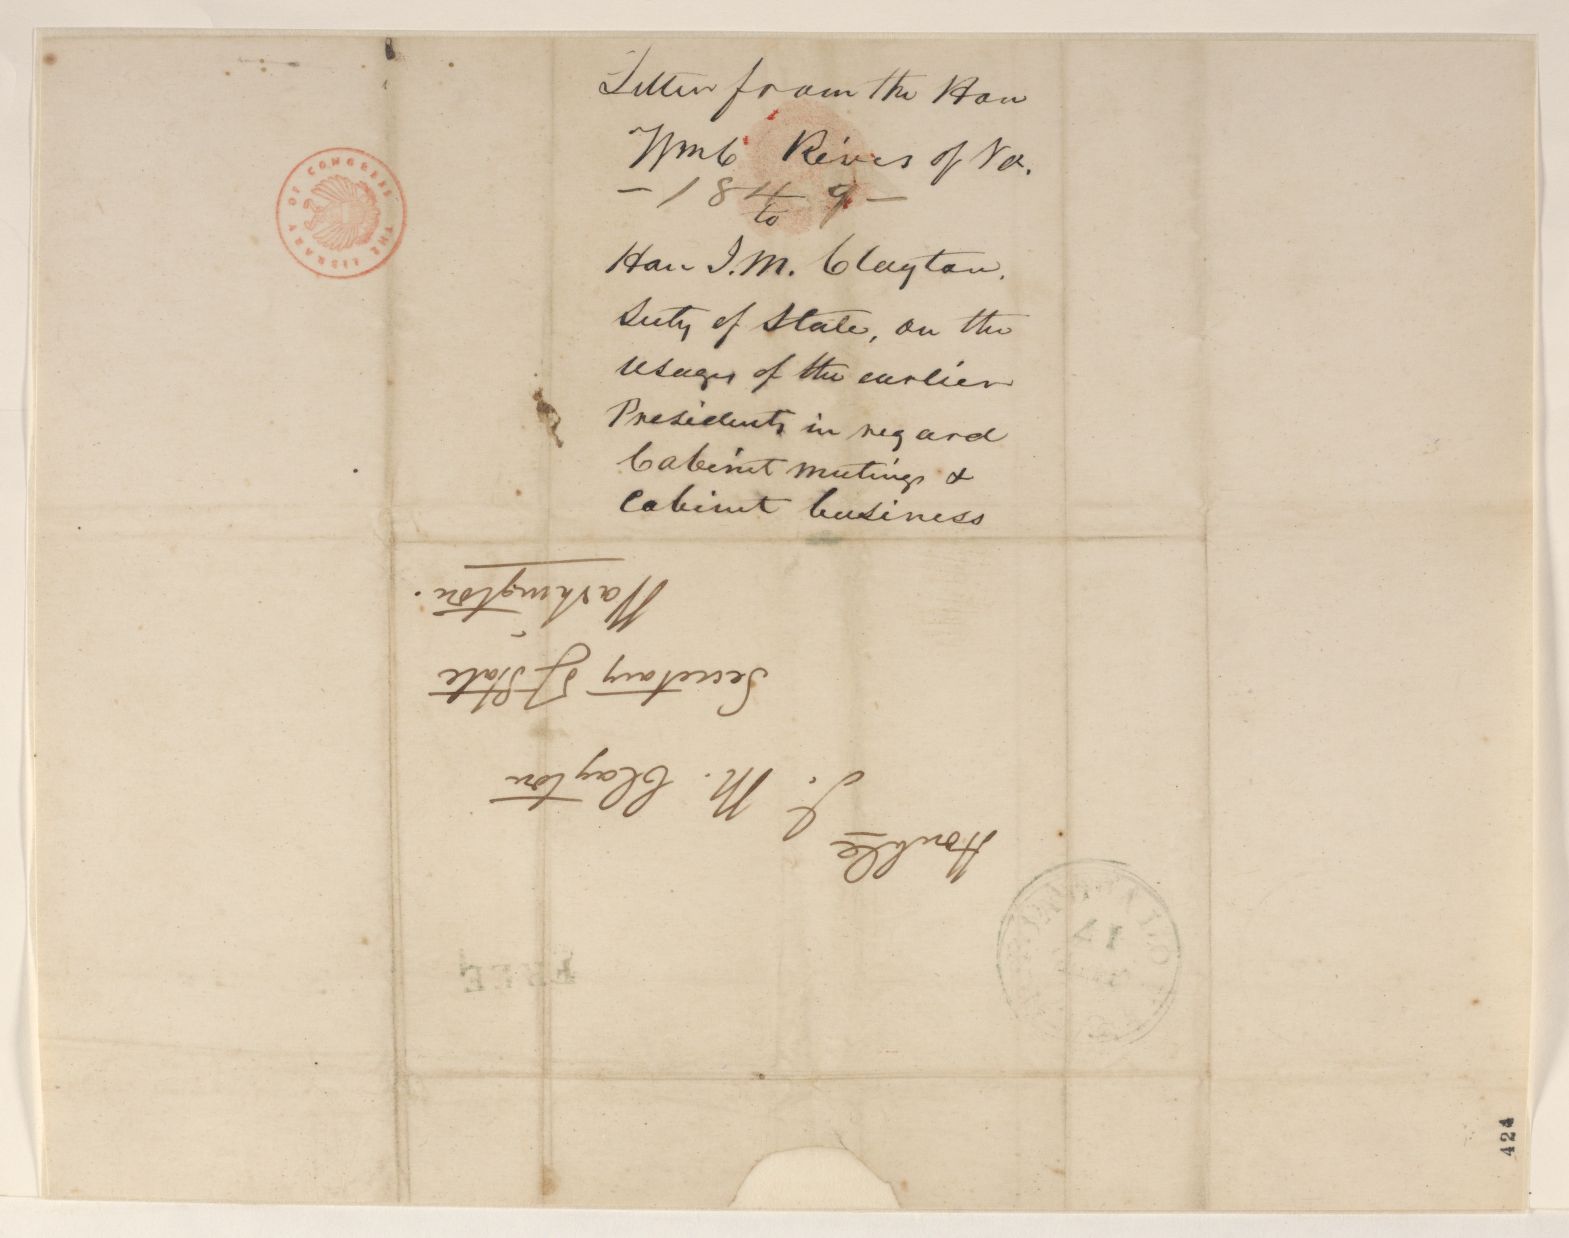 Letter from the Hon
Wm C Rives of Va.
- 1849 -
to
Hon J. M. Clayton.
Secty of State, on the
usages of the earlier
Presidents in regard
Cabinet meetings &
Cabinet business
THE LIBRARY OF CONGRESS
Honble J. M. Clayton
Secretary of State
Washington.
FREE
424